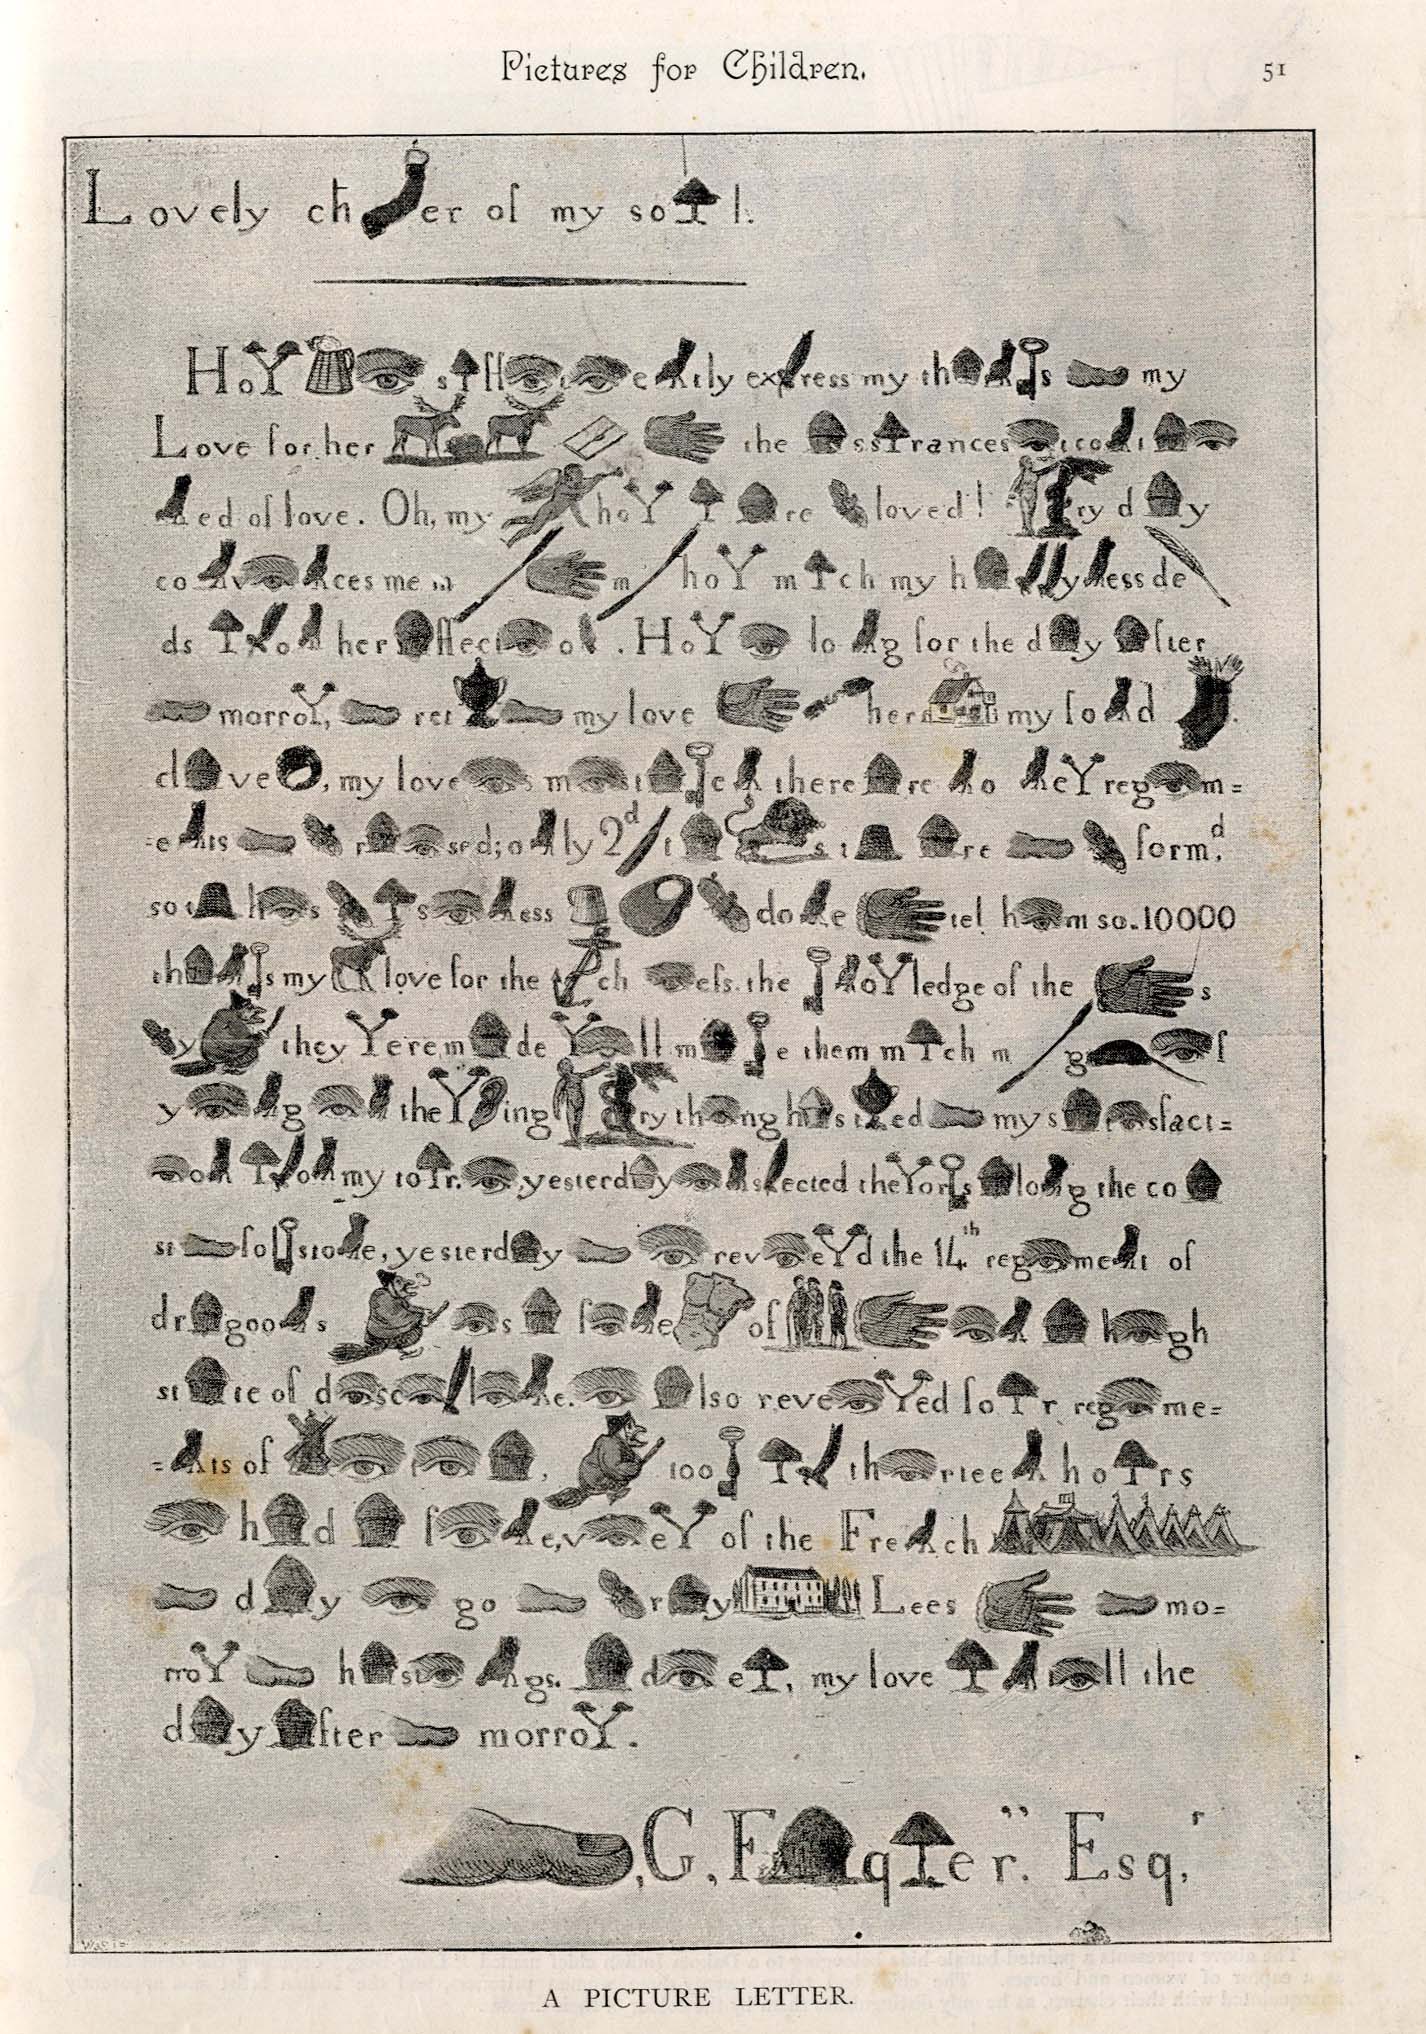 Pictures for Children.
51
Lovely ch er of my so l.
Ho s ff e tly express my th s my
Love for her the ss rances t co t
ed of love. Oh, my ho re loved! ry d y
co v ces me in m ho m ch my h y ess de
ds o her ffect o . Ho lo g for the d y fter
morro , ret my love here my fo d .
cl ve , my love m t c there re o e reg m=
=e ts r sed; o ly 2d t s t re form.d
so t h s s ess do e tel h m so. 10000
th s my love for the ch efs. the o ledge of the s
y they ere m de ll m e them m ch m g f
y g the ing ry th ng h s t ed my s t sfact=
o o my to r. , yesterd y s ected the or s lo g the co
st fol sto e, yesterd y rev e d the 14th reg me t of
dr goo s s f e of h gh
st te of d sc l e. lso rev e ed fo r reg me=
= ts of t , too th rtee ho rs
h d f e, v e of the Fre ch
d y go r y Lees mo=
rro h st gs. d e , my love t ll the
d y fter morro .
, G, F q er." Esqr,
A PICTURE LETTER.